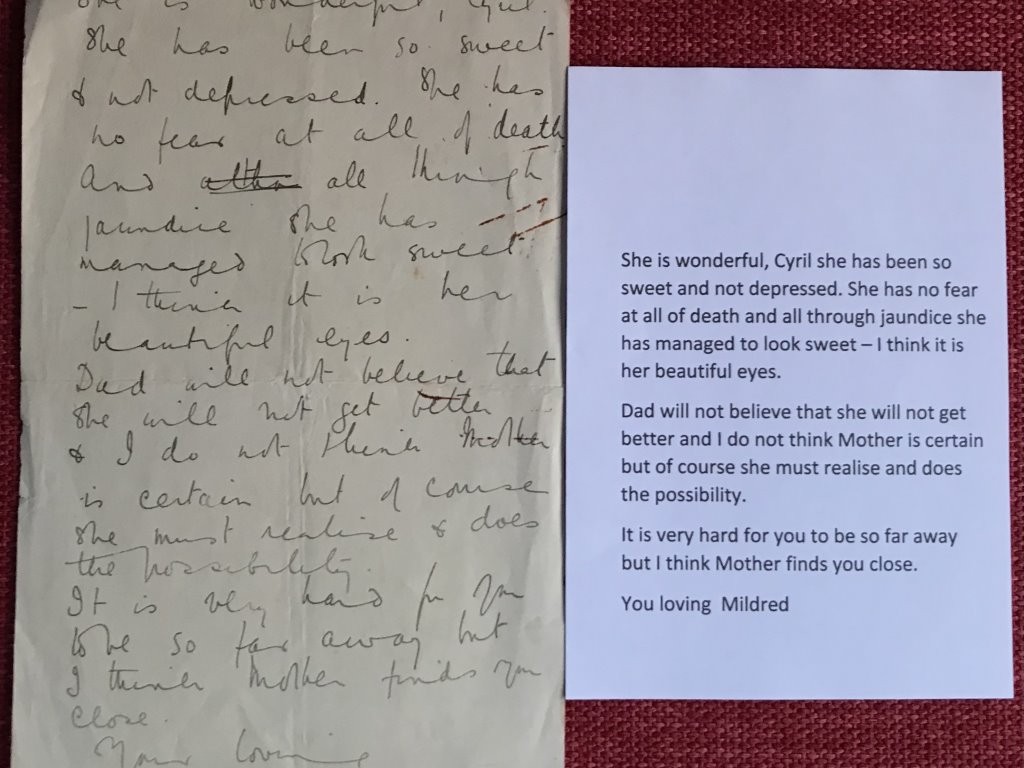 She is wonderful, Cyril.
She has been so sweet
& not depressed. She has
no fear at all of death
And altho all through
jaundice she has
managed to look sweet
– I think it is her
beautiful eyes.
Dad will not believe that
she will not get better
& I do not think Mother
is certain but of course
she must realise & does
the possibility.
It is very hard for you
to be so far away but
I think Mother finds you
close.
Your loving
She is wonderful, Cyril she has been so
sweet and not depressed. She has no fear
at all of death and all through jaundice she
has managed to look sweet – I think it is
her beautiful eyes.
Dad will not believe that she will not get
better and I do not think Mother is certain
but of course she must realise and does
the possibility.
It is very hard for you to be so far away
but I think Mother finds you close.
You loving Mildred